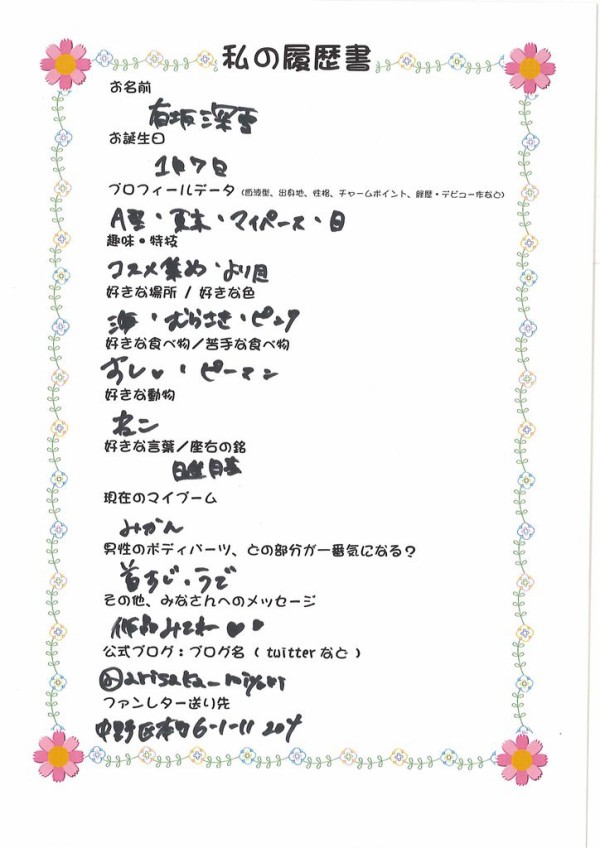 私の履歴書
お名前
有坂深雪
お誕生日
1月7日
プロフィールデータ（血液型、出身地、性格、チャームポイント、経歴・デビュー作など）
A型・東京・マイペース・目
趣味・特技
コスメ集め・より目
好きな場所 / 好きな色
海・むらさき・ピンク
好きな食べ物／苦手な食べ物
おすし♡・ピーマン
好きな動物
ねこ
好きな言葉／座右の銘
日進月歩
現在のマイブーム
みかん
男性のボディパーツ、どの部分が一番気になる？
首すじ・うで
その他、みなさんへのメッセージ
作品みてね♡♡
公式ブログ：ブログ名 ( twitterなど )
@arisaka_miyuki
ファンレター送り先
中野区本町6-1-11 204